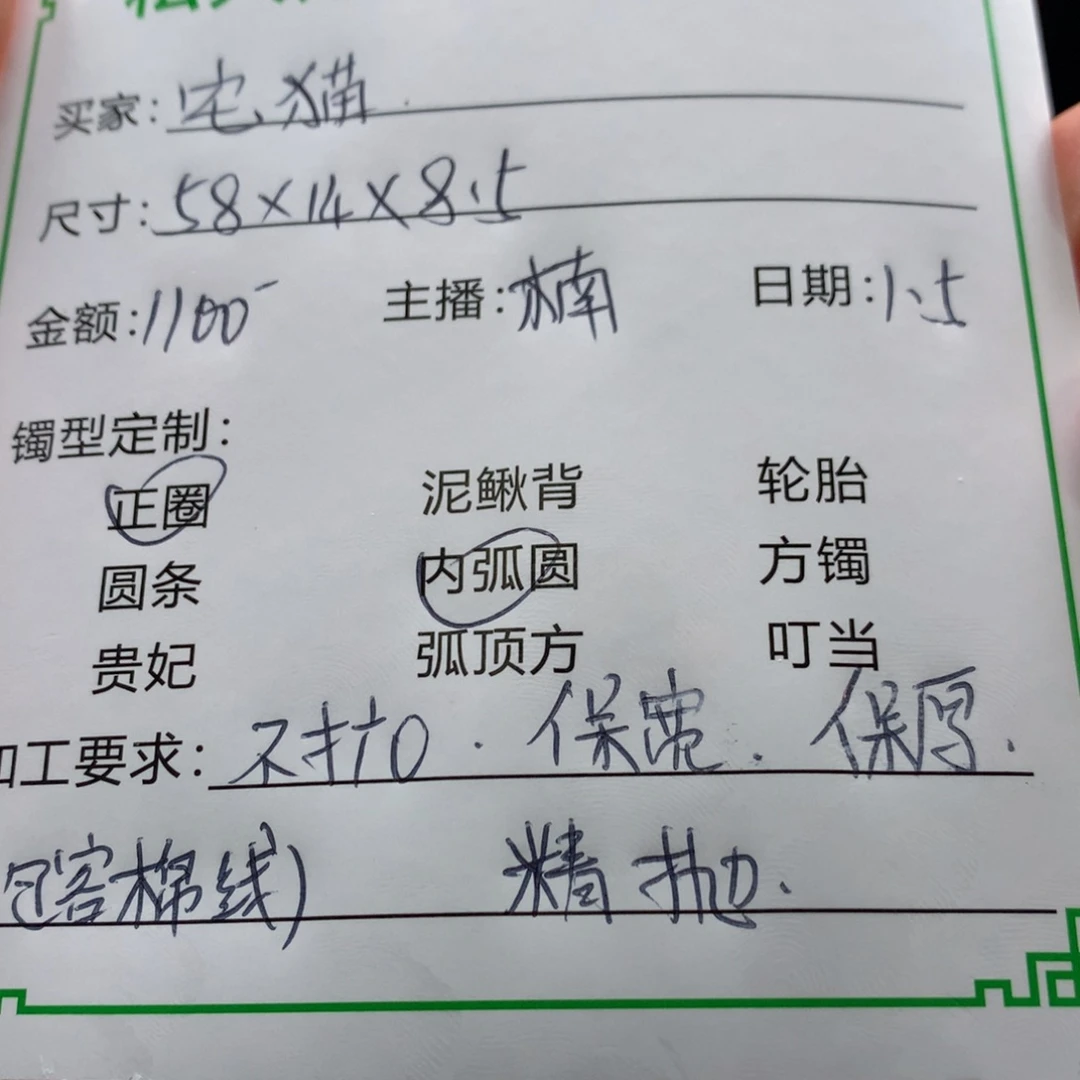 买家：宅猫
尺寸：58×14×8.5
金额：1100- 主播：楠 日期：1.5
镯型定制：
正圈 泥鳅背 轮胎
圆条 内弧圆 方镯
贵妃 弧顶方 叮当
加工要求：不扩口．保宽．保厚．
包客棉线） 精抛．